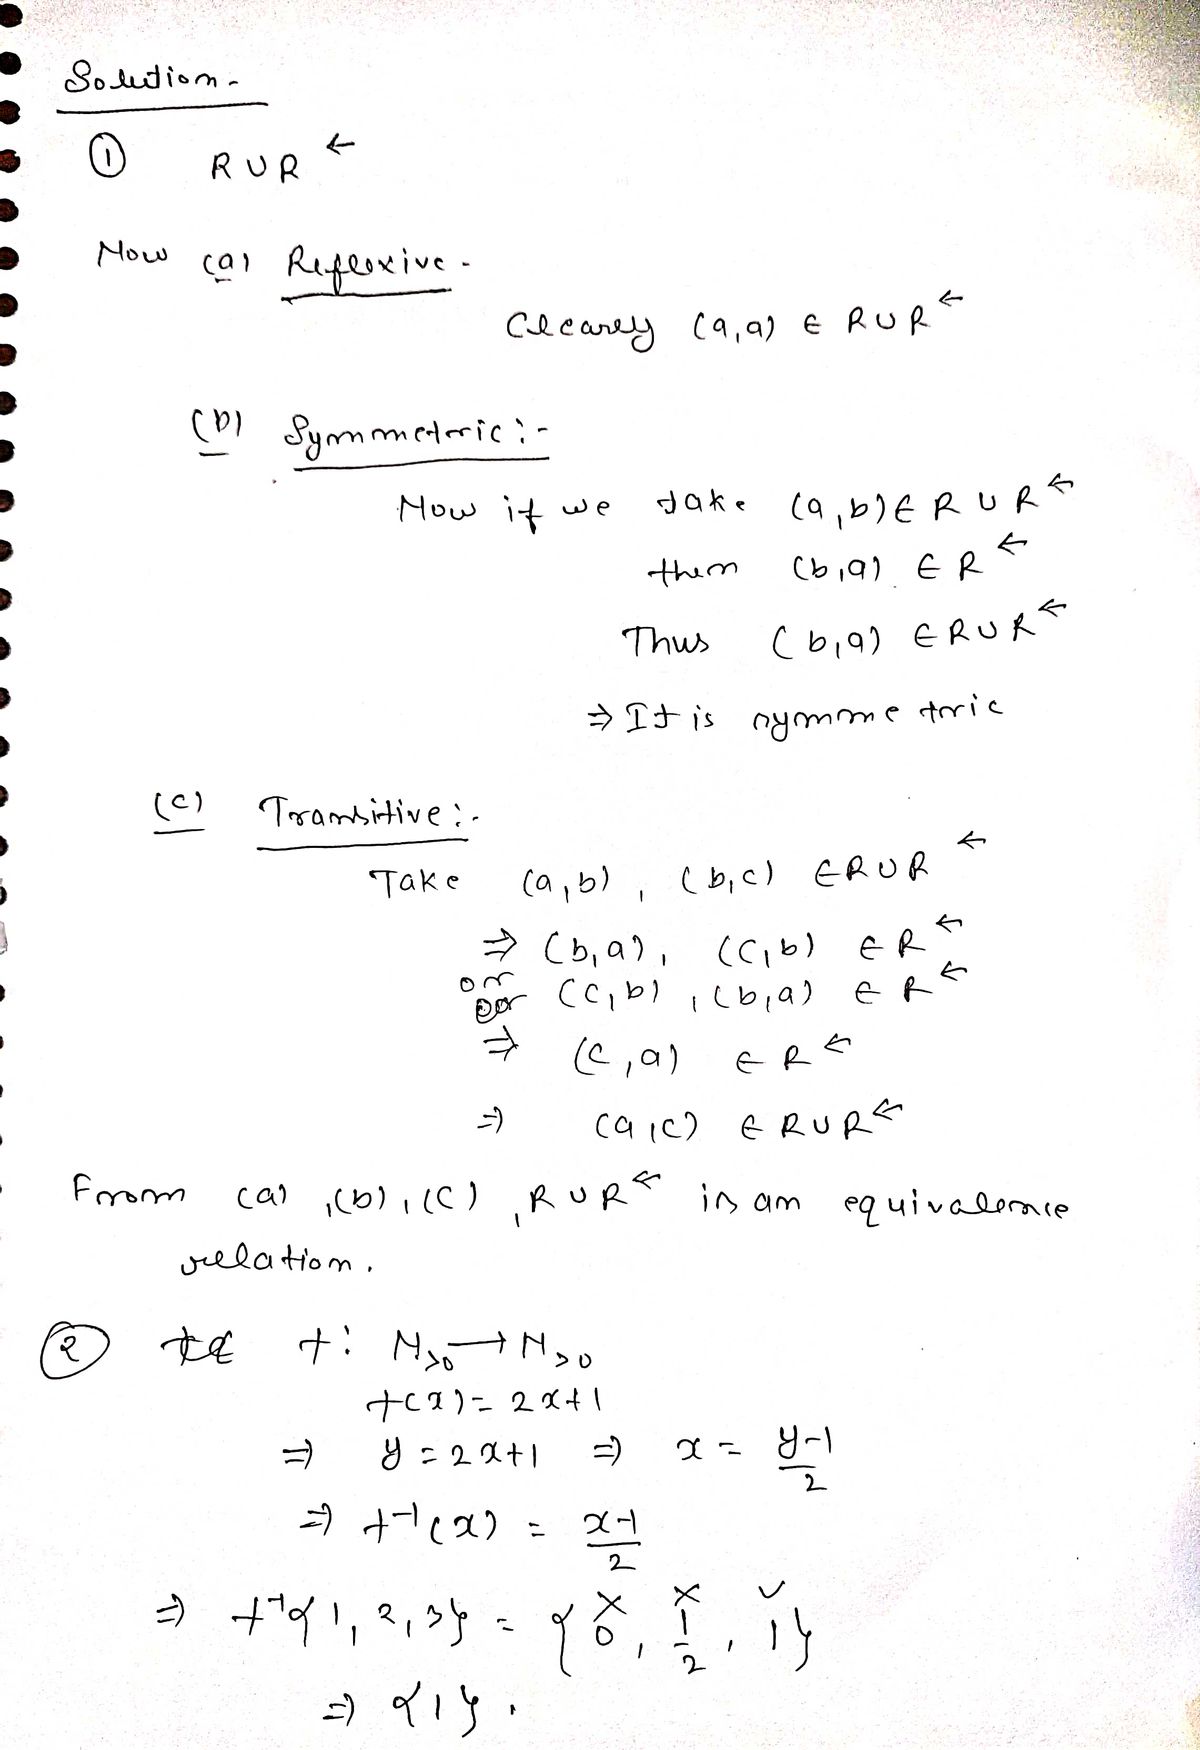 Solution -
① R ∪ R ←
Now (a) Reflexive -
Clearly (a,a) ∈ R ∪ R ←
(b) Symmetric :-
Now if we take (a,b) ∈ R ∪ R ←
then (b,a) ∈ R ←
Thus (b,a) ∈ R ∪ R ←
⇒ It is symmetric
(c) Transitive :-
Take (a,b) , (b,c) ∈ R ∪ R ←
⇒ (b,a), (c,b) ∈ R ←
or (c,b) , (b,a) ∈ R ←
⇒ (c,a) ∈ R ←
⇒ (a,c) ∈ R ∪ R ←
From (a) ,(b),(c) , R ∪ R ← is an equivalence
relation.
② f: N>0 → N>0
f(x) = 2x+1
⇒ y = 2x+1 ⇒ x = (y-1)/2
⇒ f⁻¹(x) = (x-1)/2
⇒ f⁻¹{1, 2, 3} = {0, 1/2, 1}
⇒ {1}.